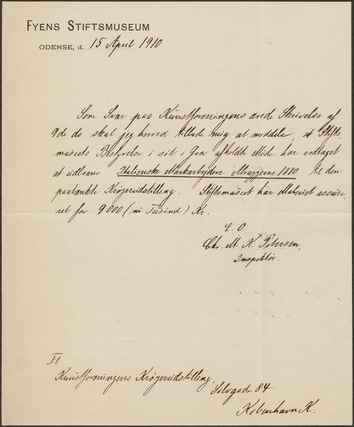 FYENS STIFTSMUSEUM
ODENSE, d. 15 April 1910
Som Svar paa Kunstforeningens ærede Skrivelse af
9de ds skal jeg herved tillade mig at meddele, at Stifts-
museets Bestyrelse i sit i Gaar afholdte Møde har vedtaget
at udlaane Italienske Markarbejdere Abruzzerne 1880 til den
paatænkte Krøyerudstilling. Stiftsmuseet har Maleriet assure-
ret for 9000 (ni Tusind) Kr.
Chr. M. K. Petersen,
Inspektør.
Til
Kunstforeningens Krøyerudstilling,
København K.